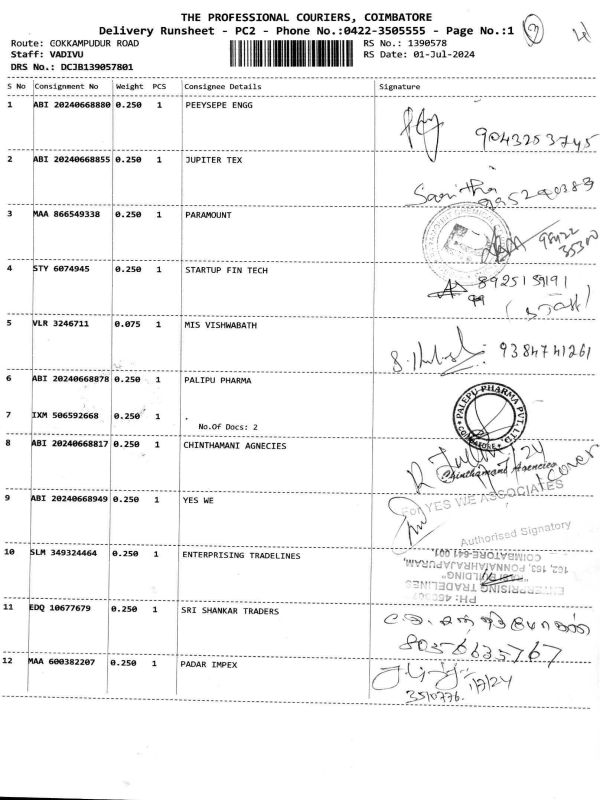 THE PROFESSIONAL COURIERS, COIMBATORE
Delivery Runsheet - PC2 - Phone No.:0422-3505555 - Page No.:1
3
Route: GOKKAMPUDUR ROAD
RS No.: 1390578
Staff: VADIVU
RS Date: 01-Jul-2024
DRS No.: DCJB139057801
S No Consignment No Weight PCS Consignee Details Signature
1 ABI 20240668880 0.250 1 PEEYSEPE ENGG
9043253745
2 ABI 20240668855 0.250 1 JUPITER TEX
Saritha
3 MAA 866549338 0.250 1 PARAMOUNT
4 STY 6074945 0.250 1 STARTUP FIN TECH
5 VLR 3246711 0.075 1 MIS VISHWABATH
9384741261
6 ABI 20240668878 0.250 1 PALIPU PHARMA
PALEPU PHARMA PVT. LTD.
COIMBATORE
7 IXM 506592668 0.250 1 .
No.Of Docs: 2
8 ABI 20240668817 0.250 1 CHINTHAMANI AGNECIES
Chinthamani Agencies
cover
9 ABI 20240668949 0.250 1 YES WE
For YES WE ASSOCIATES
Authorised Signatory
10 SLM 349324464 0.250 1 ENTERPRISING TRADELINES
ENTERPRISING TRADELINES
162, 163, PONNAIAHRAJAPURAM,
COIMBATORE-641 001.
11 EDQ 10677679 0.250 1 SRI SHANKAR TRADERS
8056635767
12 MAA 600382207 0.250 1 PADAR IMPEX
1/7/24
3510776.